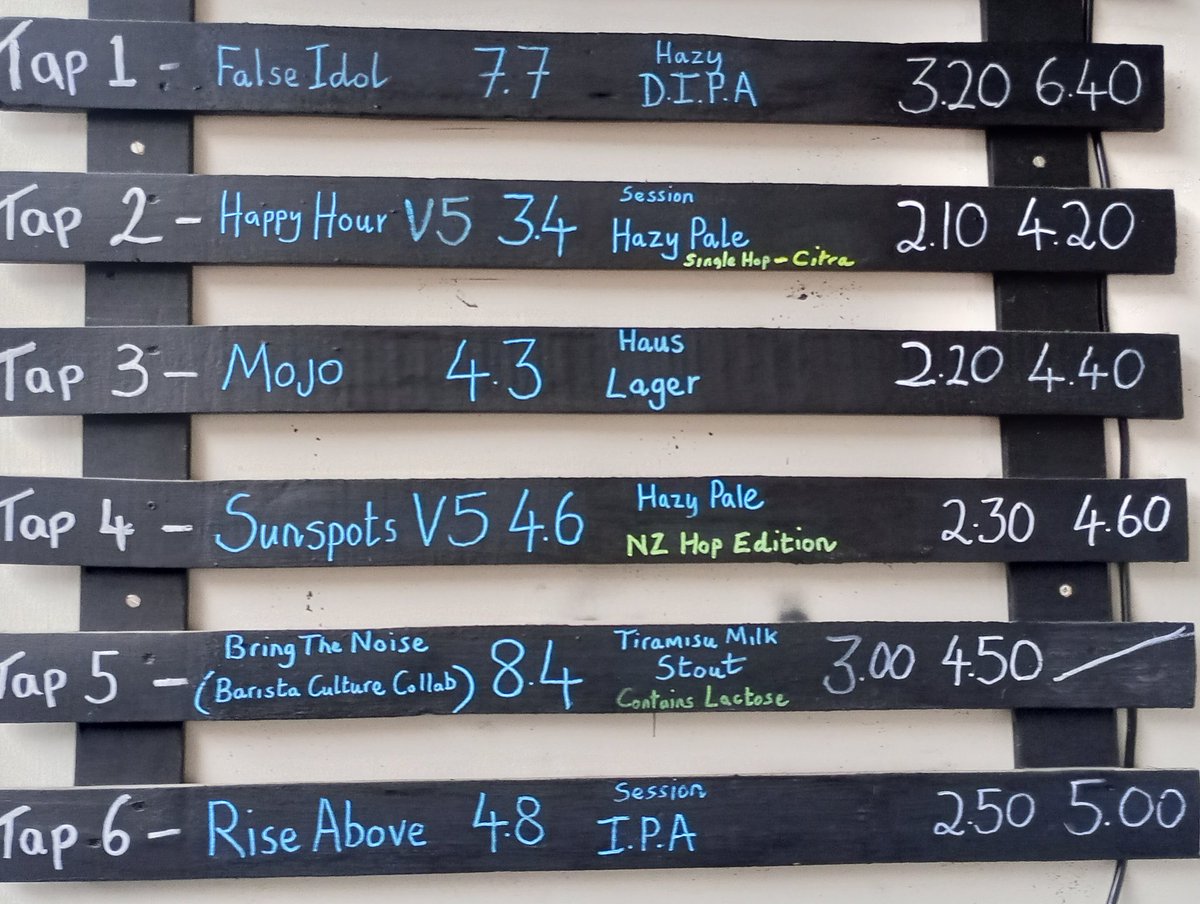 Tap 1 - False Idol 7.7 Hazy D.I.P.A 3.20 6.40
Tap 2 - Happy Hour V5 3.4 Session Hazy Pale Single Hop - Citra 2.10 4.20
Tap 3 - Mojo 4.3 Haus Lager 2.20 4.40
Tap 4 - Sunspots V5 4.6 Hazy Pale NZ Hop Edition 2.30 4.60
Tap 5 - Bring The Noise (Barista Culture Collab) 8.4 Tiramisu Milk Stout Contains Lactose 3.00 4.50 —
Tap 6 - Rise Above 4.8 Session I.P.A 2.50 5.00